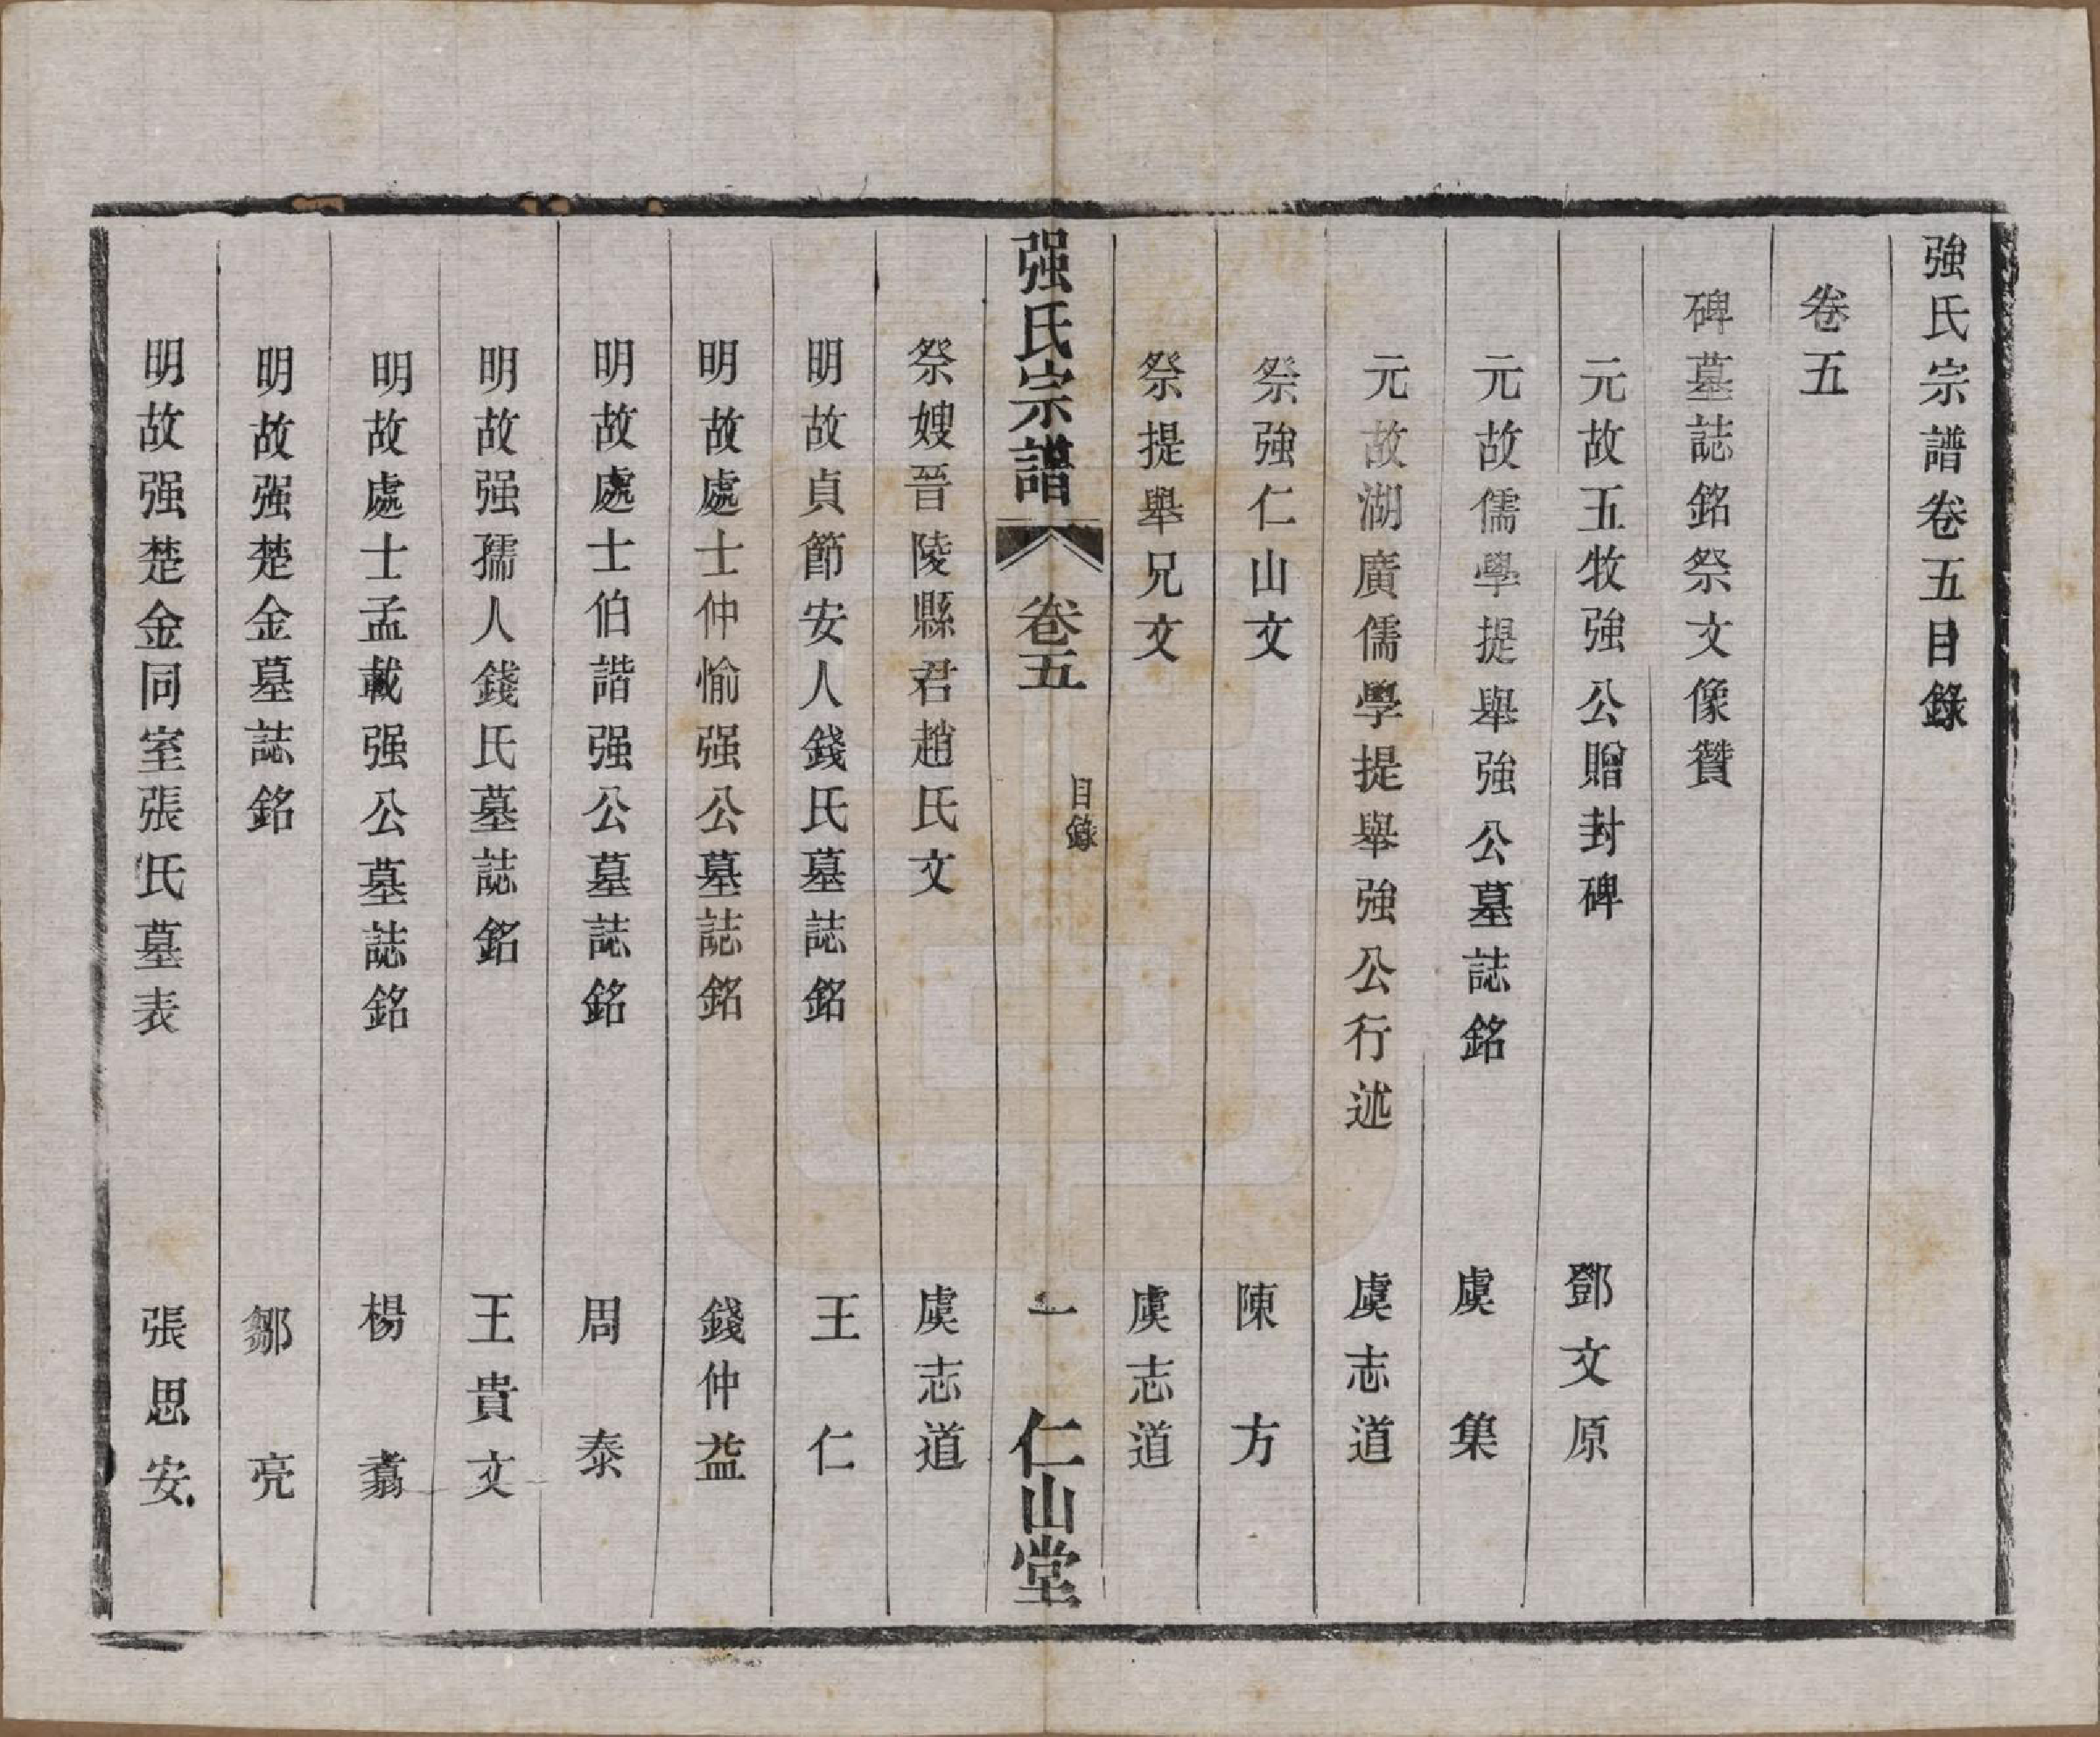 強氏宗譜卷五目錄
卷五
碑墓誌銘祭文像贊
元故五牧強公贈封碑 鄧文原
元故儒學提舉強公墓誌銘 虞集
元故湖廣儒學提舉強公行述 虞志道
祭強仁山文 陳方
祭提舉兄文 虞志道
强氏宗譜 卷五 目錄 一 仁山堂
祭嫂晉陵縣君趙氏文 虞志道
明故貞節安人錢氏墓誌銘 王仁
明故處士仲愉强公墓誌銘 錢仲益
明故處士伯諧强公墓誌銘 周泰
明故强孺人錢氏墓誌銘 王貴文
明故處士孟載强公墓誌銘 楊翥
明故强楚金墓誌銘 鄒亮
明故强楚金同室張氏墓表 張思安